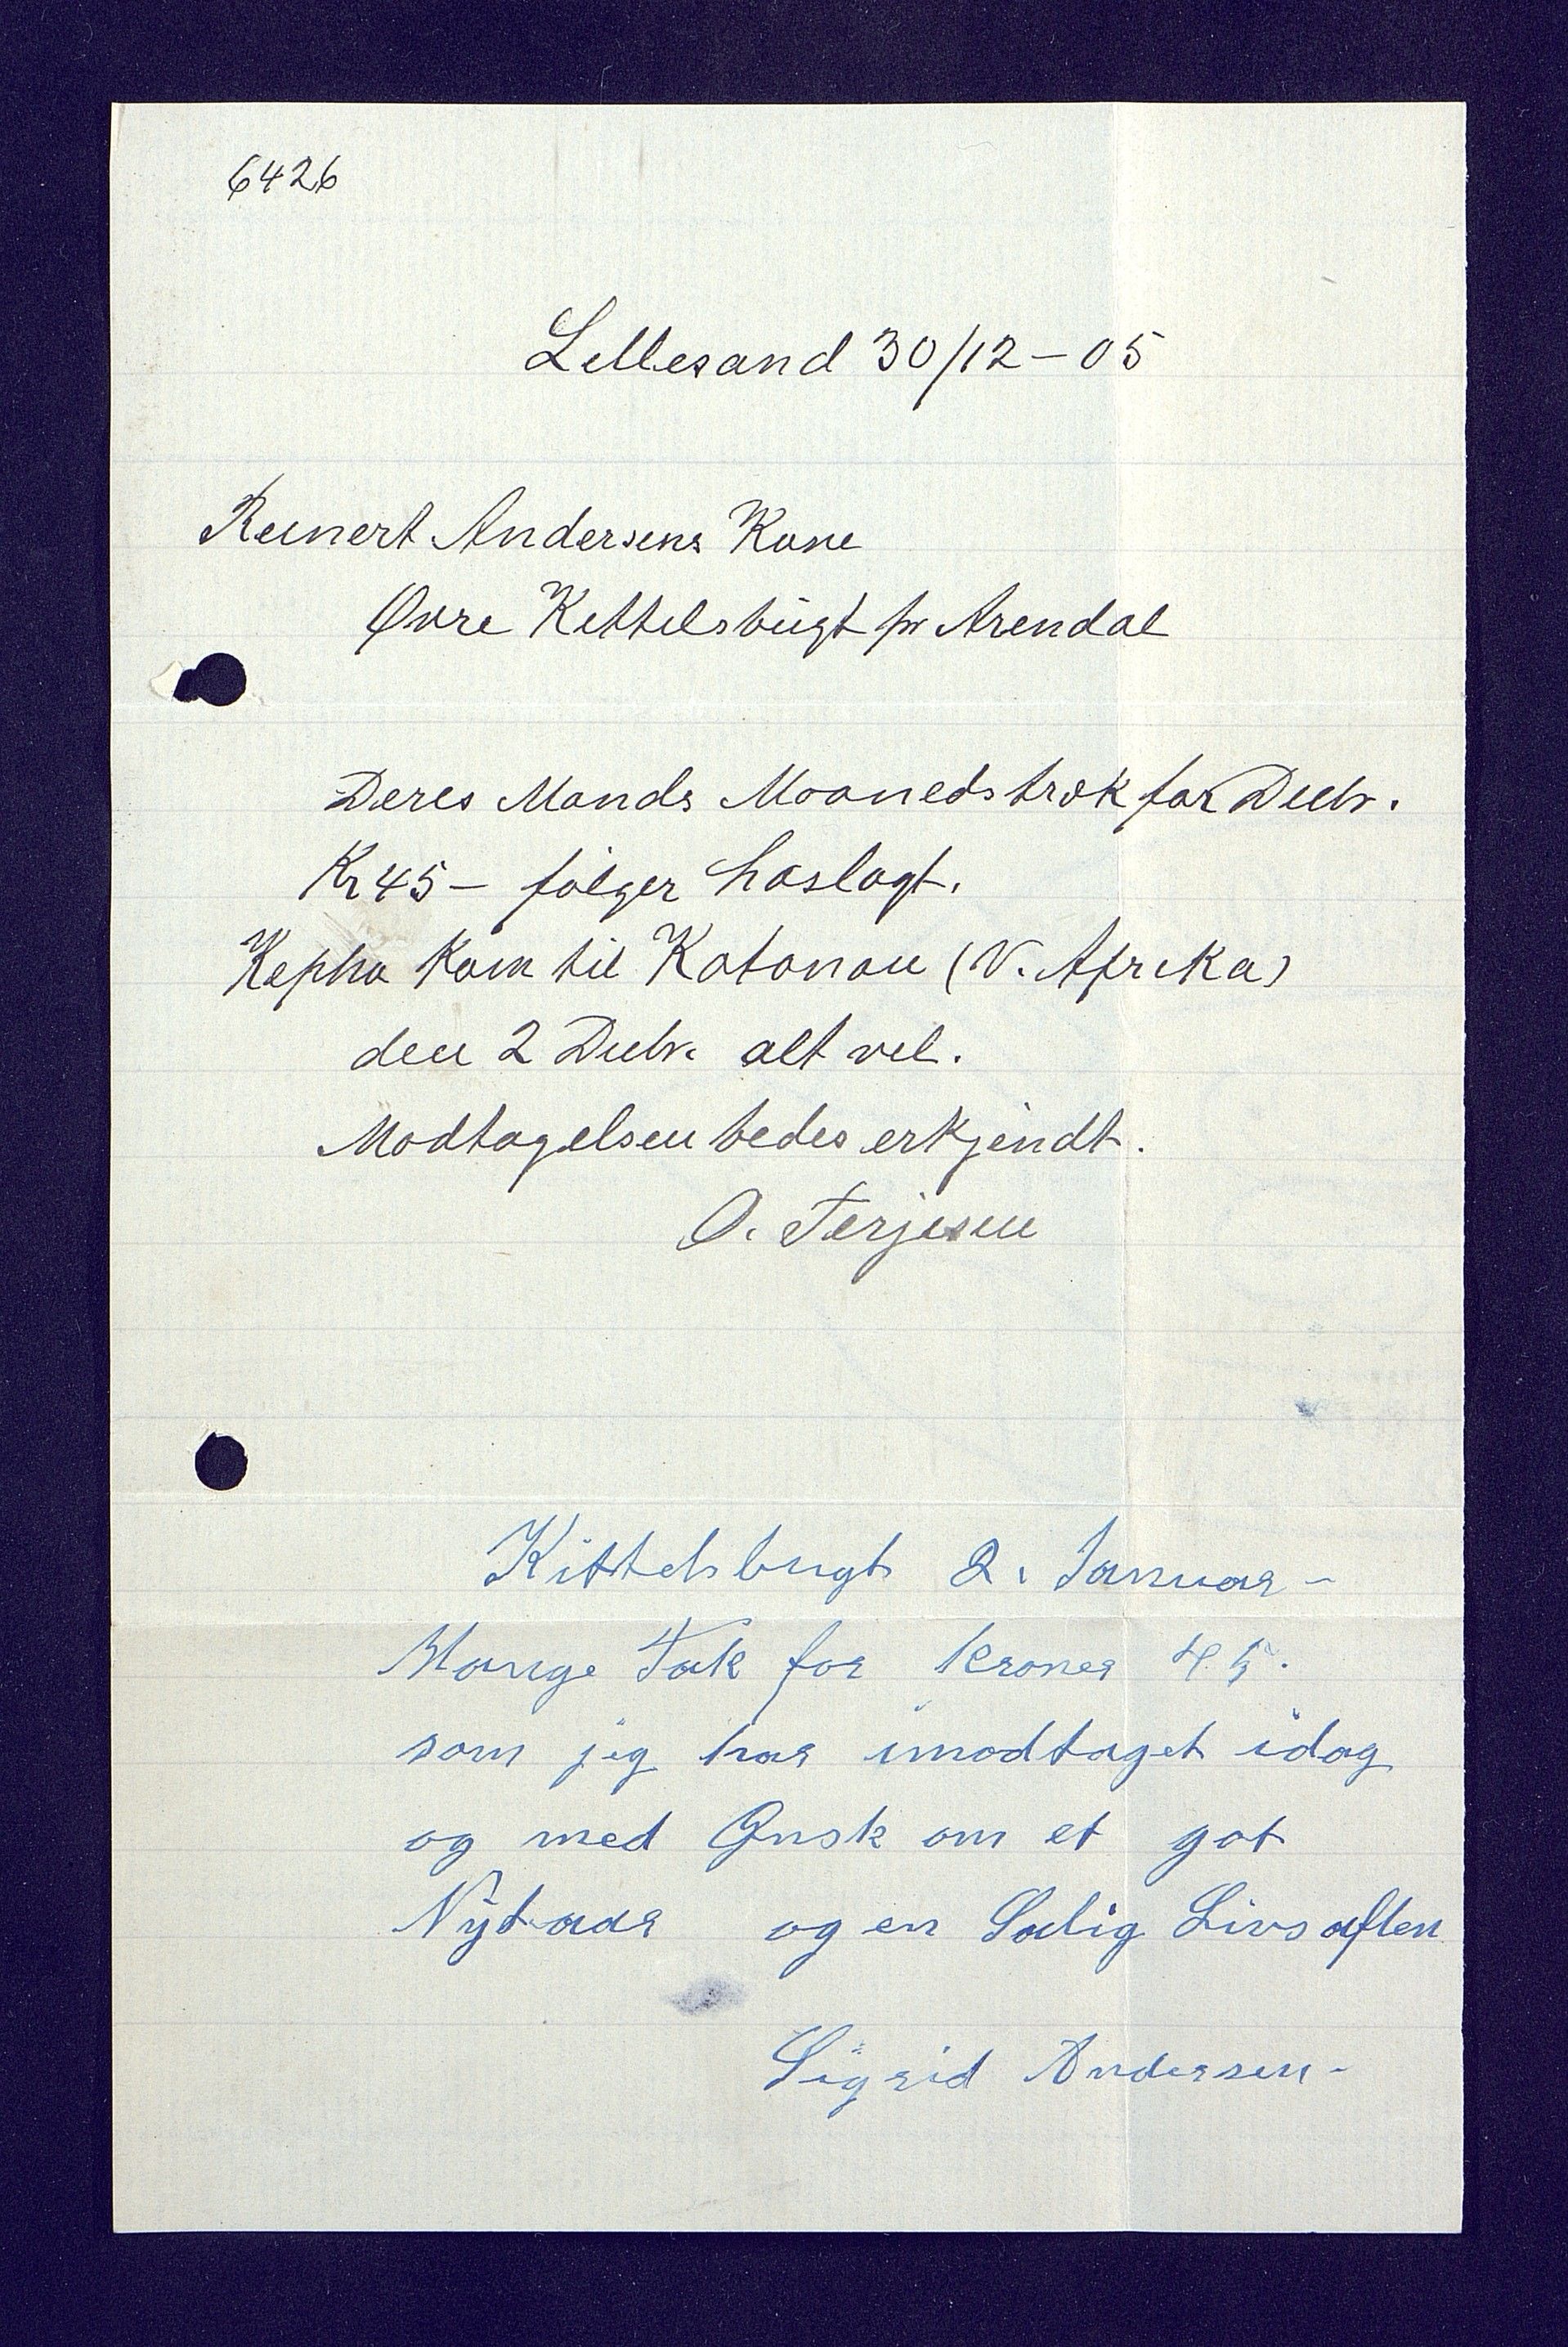 6426
Lillesand 30/12-05
Reinert Andersens Kone
Øvre Kittelsbugt pr Arendal
Deres Mands Maanedstræk for Decbr.
Kr 45- følger hoslagt.
Hepha kom til Kotonou (V. Afrika)
den 2 Decbr. alt vel.
Modtagelsen bedes erkjendt.
O. Terjesen
Kittelsbugt 2. Januar -
Mange Tak for kroner 45.
som jeg har imodtaget idag
og med Ønsk om et got
Nytaar og en Salig Livsaften
Sigrid Andersen -